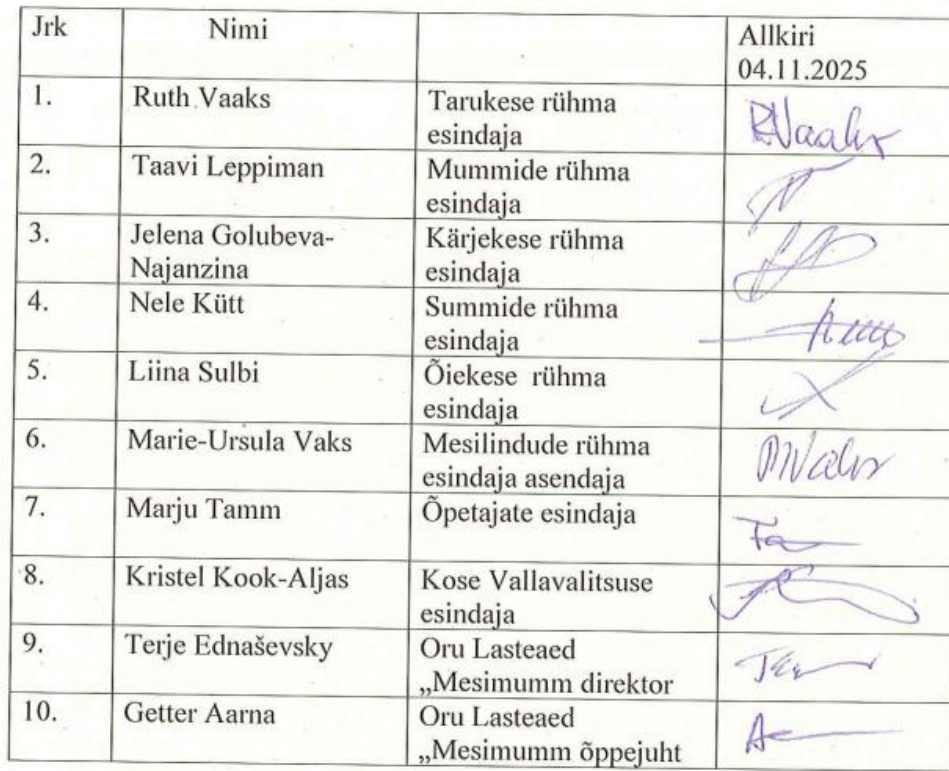 Jrk Nimi Allkiri
04.11.2025
1. Ruth Vaaks Tarukese rühma
esindaja
2. Taavi Leppiman Mummide rühma
esindaja
3. Jelena Golubeva- Kärjekese rühma
Najanzina esindaja
4. Nele Kütt Summide rühma
esindaja
5. Liina Sulbi Õiekese rühma
esindaja
6. Marie-Ursula Vaks Mesilindude rühma
esindaja asendaja
7. Marju Tamm Õpetajate esindaja
8. Kristel Kook-Aljas Kose Vallavalitsuse
esindaja
9. Terje Ednaševsky Oru Lasteaed
„Mesimumm direktor
10. Getter Aarna Oru Lasteaed
„Mesimumm õppejuht